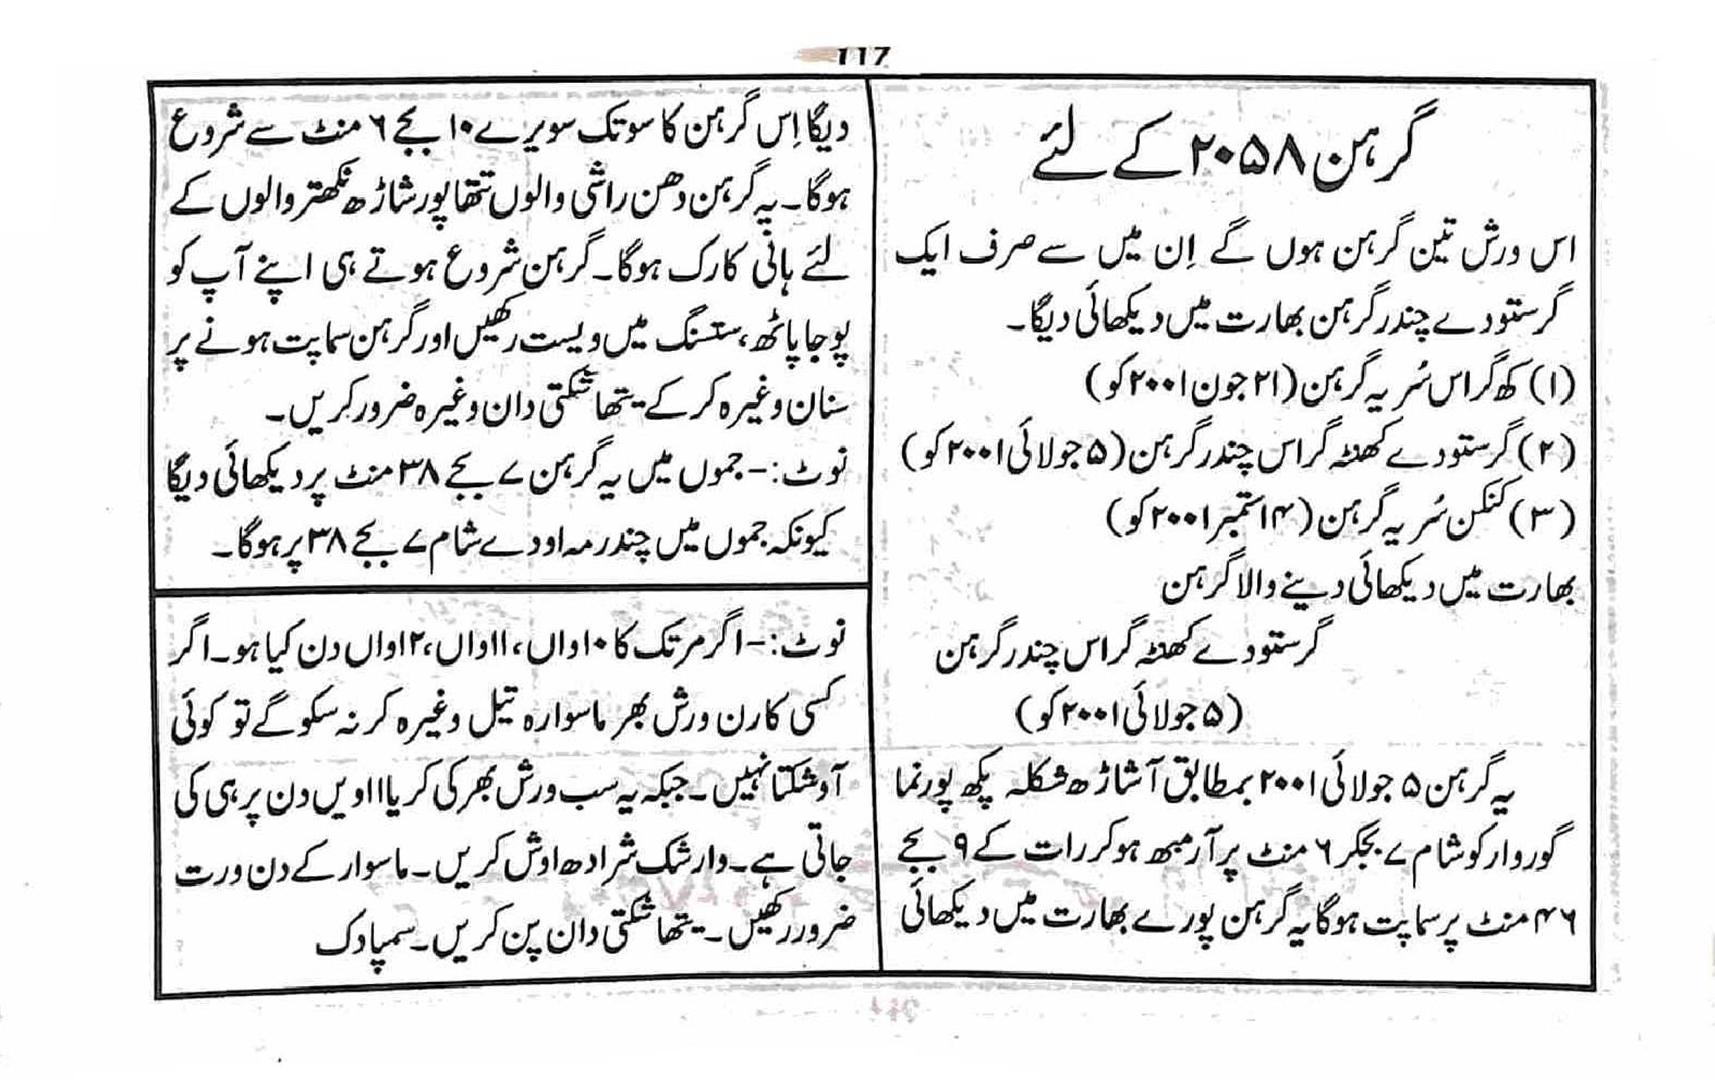 117
گرہن ۲۰۵۸ کے لئے
اس ورش تین گرہن ہوں گے اِن میں سے صرف ایک
گرستودے چندر گرہن بھارت میں دیکھائی دیگا۔
(۱) کھ گراس سُریہ گرہن (۲۱ جون ۲۰۰۱ کو)
(۲) گرستودے کھنڈ گراس چندر گرہن (۵ جولائی ۲۰۰۱ کو)
(۳) کنکن سُریہ گرہن (۱۴ ستمبر ۲۰۰۱ کو)
بھارت میں دیکھائی دینے والا گرہن
گرستودے کھنڈ گراس چندر گرہن
(۵ جولائی ۲۰۰۱ کو)
یہ گرہن ۵ جولائی ۲۰۰۱ بمطابق آشاڑھ شکلہ پکھ پورنما
گوروار کو شام ۷ بجکر ۶ منٹ پر آرمبھ ہوکر رات کے ۹ بجے
۴۶ منٹ پر سماپت ہوگا یہ گرہن پورے بھارت میں دیکھائی
دیگا اِس گرہن کا سوتک سویرے ۱۰ بجے ۶ منٹ سے شروع
ہوگا۔ یہ گرہن دھن راشی والوں تتھا پورشاڑھ نکھتر والوں کے
لئے ہانی کارک ہوگا۔ گرہن شروع ہوتے ہی اپنے آپ کو
پوجا پاٹھ، ستسنگ میں ویست رکھیں اور گرہن سماپت ہونے پر
سنان وغیرہ کر کے یتھا شکتی دان وغیرہ ضرور کریں۔
نوٹ:- جموں میں یہ گرہن ۷ بجے ۳۸ منٹ پر دیکھائی دیگا
کیونکہ جموں میں چندرمہ اودے شام ۷ بجے ۳۸ پر ہوگا۔
نوٹ:- اگر مرتک کا ۱۰واں، ۱۱واں، ۱۲واں دن کیا ہو۔ اگر
کسی کارن ورش بھر ماسوارہ تیل وغیرہ کر نہ سکو گے تو کوئی
آوشکتا نہیں۔ جبکہ یہ سب ورش بھر کی کریا ۱۱ویں دن پر ہی کی
جاتی ہے۔ وارشک شرادھ اوش کریں۔ ماسوار کے دن ورت
ضرور رکھیں۔ یتھا شکتی دان پن کریں۔ سمپادک